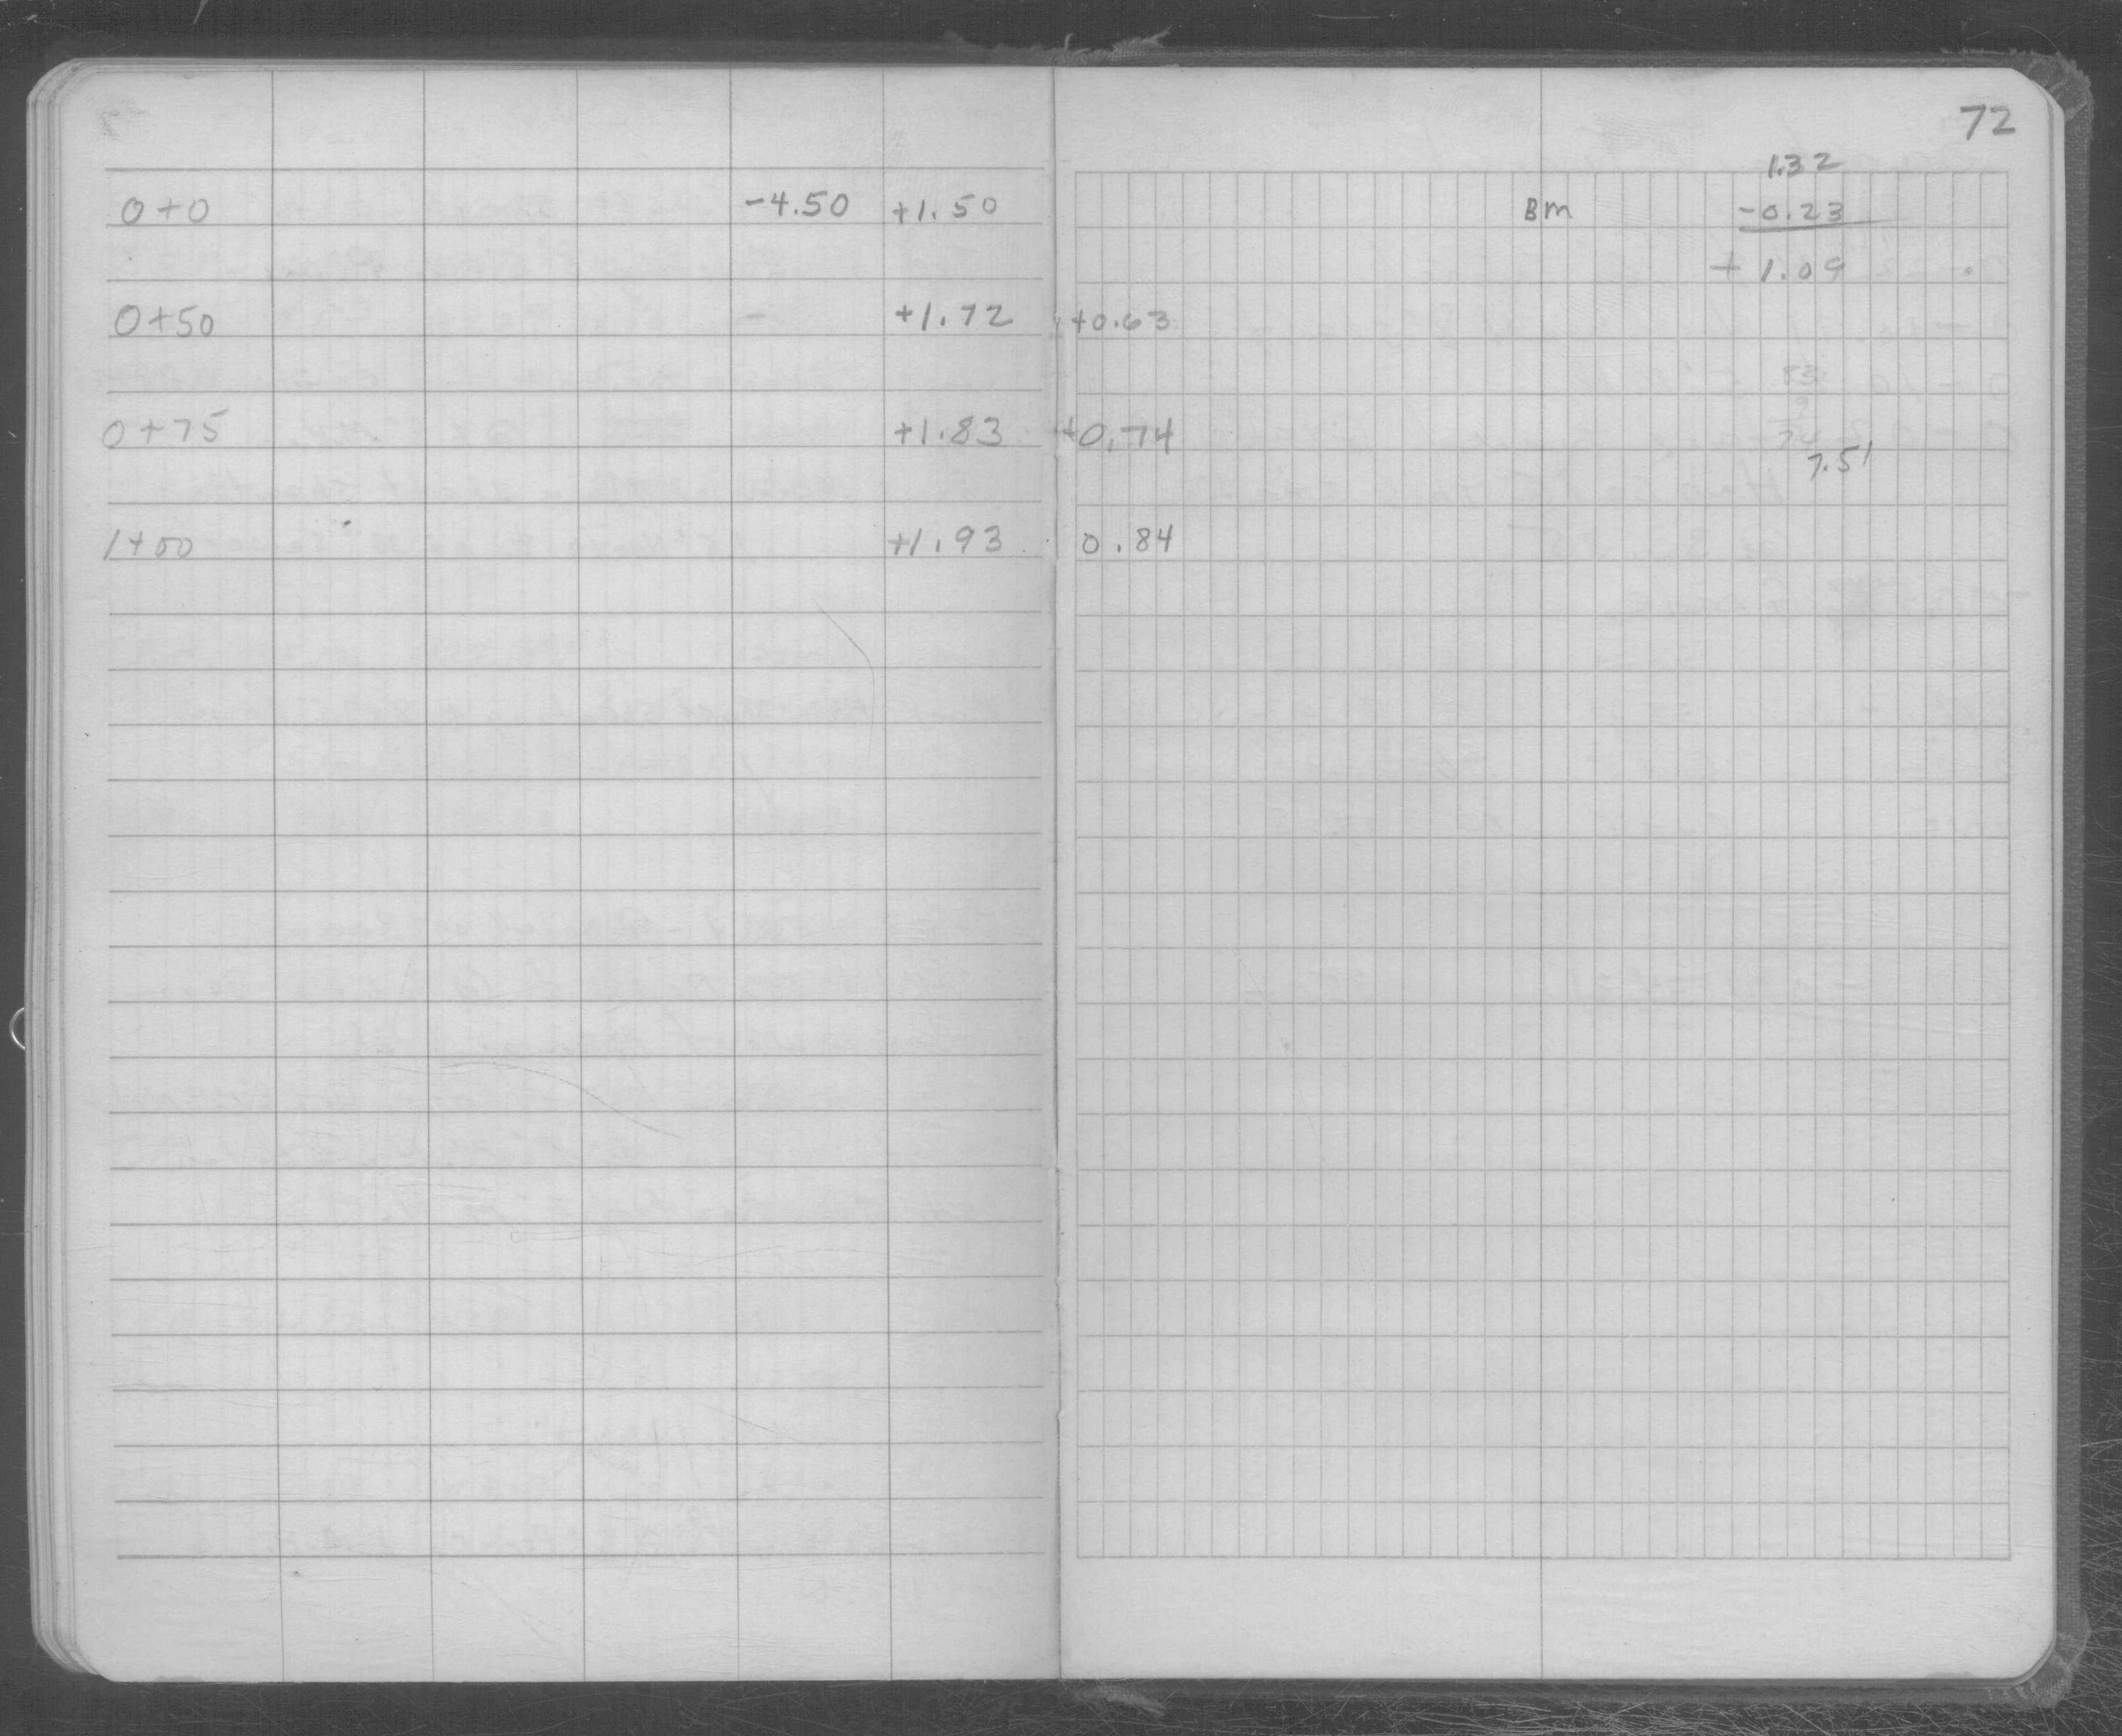 72
1.32
0+0 -4.50 +1.50 BM -0.23
+ 1.09
0+50 - +1.72 +0.63
83
9
0+75 +1.83 +0.74 74
7.51
1+00 +1.93 0.84